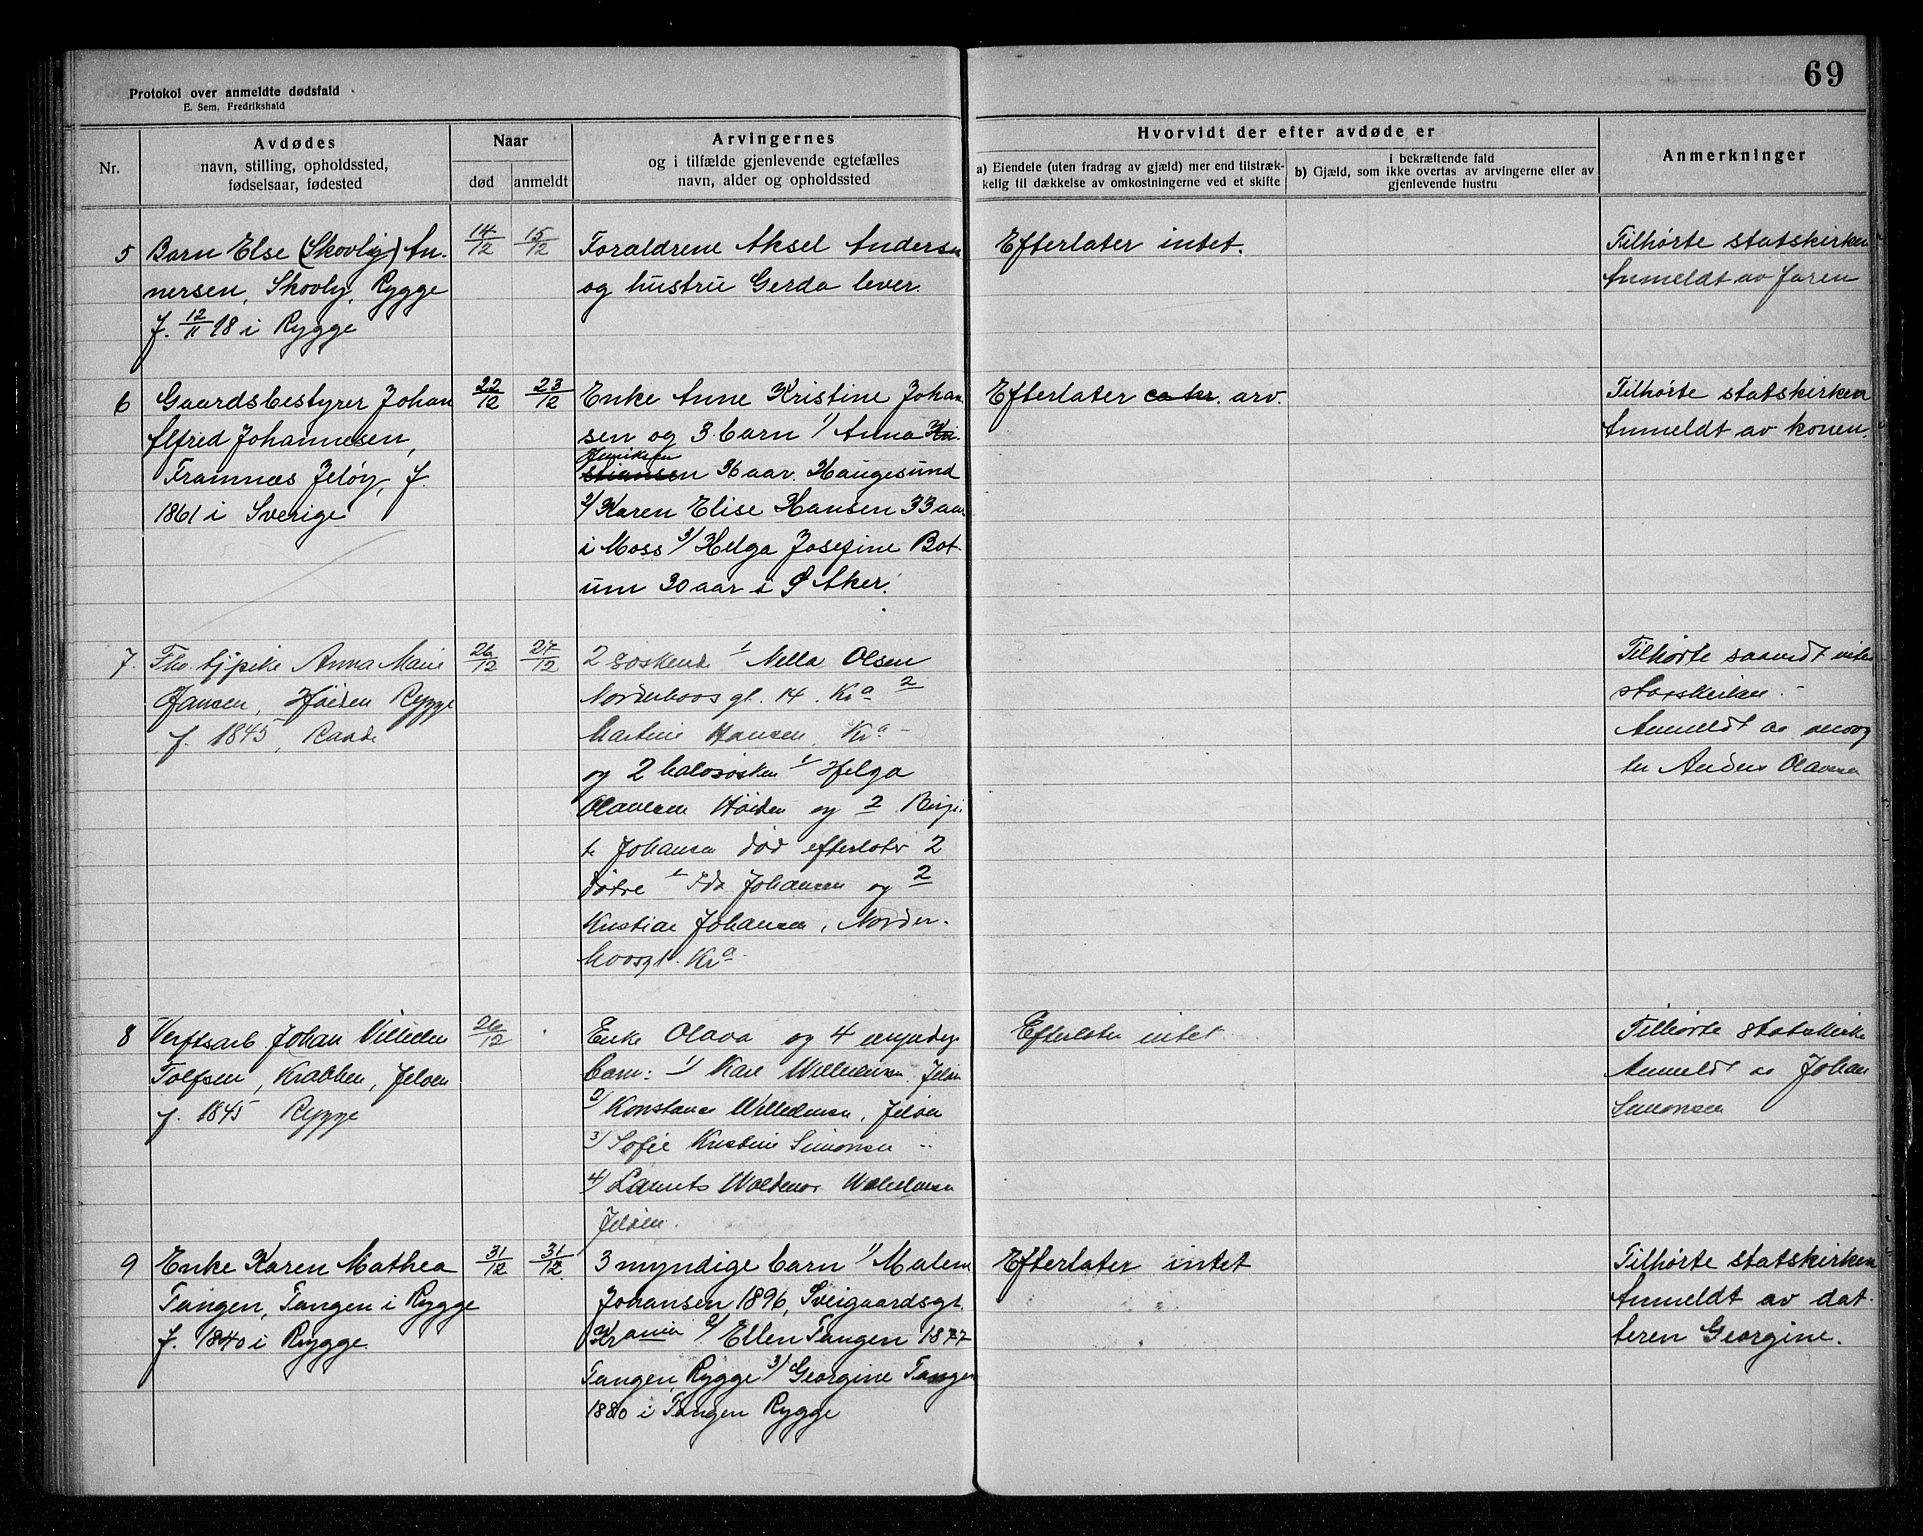 69
Protokol over anmeldte dødsfald
E. Sem, Fredrikshald
Nr.
Avdødes
navn, stilling, opholdssted,
fødselsaar, fødested
Naar
død
anmeldt
Arvingernes
og i tilfælde gjenlevende egtefælles
navn, alder og opholdssted
Hvorvidt der efter avdøde er
a) Eiendele (uten fradrag av gjæld) mer end tilstræk-
kelig til dækkelse av omkostningerne ved et skifte
I bekræftende fald
b) Gjæld, som ikke overtas av arvingerne eller av
gjenlevende hustru
Anmerkninger
5
Barn Else (Skovly) An-
nersen, Skovly, Rygge
f. 12/11 18 i Rygge
14/12
15/12
Foraldrene Aksel Andersen
og hustru Gerda lever.
Efterlater intet.
Tilhørte statskirken
Anmeldt av faren
6
Gaardsbestyrer Johan
Alfred Johannesen,
Framnæs Jeløy, f.
1861 i Sverige
22/12
23/12
Enke Anne Kristine Johan
sen og 3 barn 1/ Anna Kri-
Henriksen
stiansen 36 aar. Haugesund
2/ Karen Elise Hansen 33 aar
i Moss 3/ Helga Josefine Bot-
um 30 aar i Ø Aker.
Efterlater ca kr. arv.
Tilhørte statskirken
Anmeldt av konen.
7.
Anna Marie
Hansen, Høiden Rygge
f. 1845, Raade
26/12
27/12
2 søskende 1/ Nella Olsen
Norderhovsgt. 14. Kra 2
Martine Hansen, Kra
og 2 halvsøsken 1/ Helga
Olavesen Høiden og 2 Birgi-
te Johansen død efterlater 2
døtre 1 Ida Johansen og 2
Kristiae Johansen, Norder-
hovsgt. Kra
Tilhørte
statskirken.
Anmeldt av
Anders Olavesen
8
Verftsarb Johan Villedsen
Tolfsen, Krabben, Jeløen
f. 1845 Rygge
26/12
Enke Olava og 4 myndige
barn: 1) Karl Willedsen. Jeløen
2) Konstance Willedsen, Jeløen
3) Sofie Kristine Simonsen "
4) Laurits Waldemar
Jeløen.
Efterlater intet
Tilhørte statskirke
Anmeldt av Johan
Simonsen
9
Enke Karen Mathea
Tangen, Tangen i Rygge
f. 1840 i Rygge
31/12
31/12
3 myndige barn 1/ Malene
Johansen 1896, Sveigaardsgt.
Krania 2/ Ellen Tangen 1877
Tangen Rygge 3) Georgine Tangen
1880 i Tangen Rygge
Efterlater intet
Tilhørte statskirken
Anmeldt av dat-
teren Georgine.